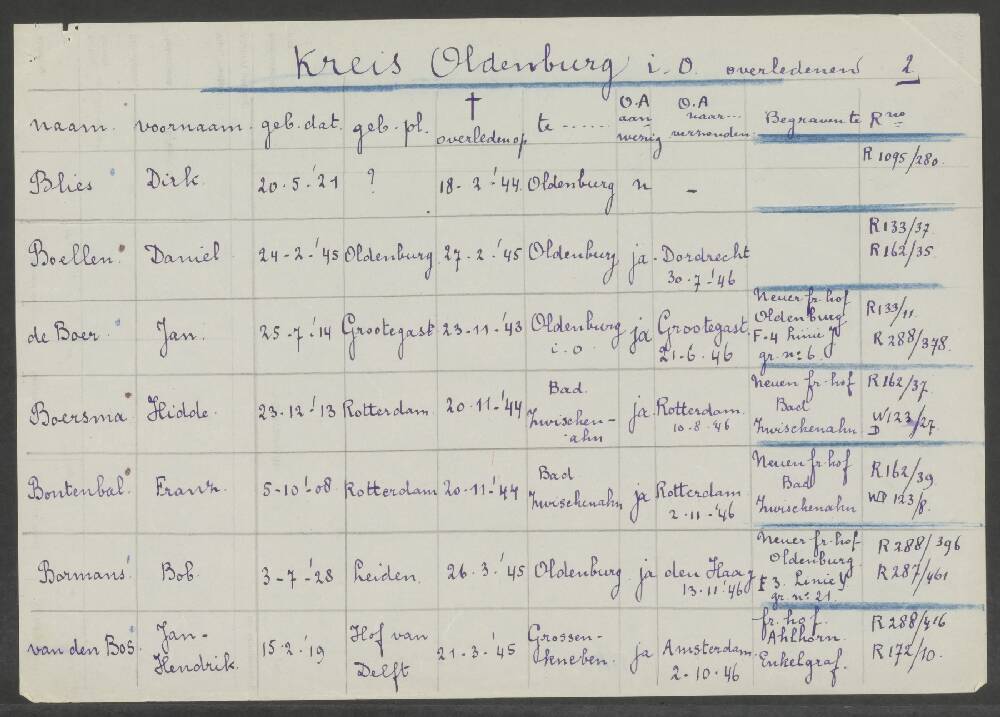 Kreis Oldenburg i.O. overledenen 2
naam. voornaam. geb. dat. geb. pl. † overleden op te ...... O.A aan wezig O.A naar... verzonden. Begraven te R no
Blies Dirk. 20-5-'21 ? 18-2-'44. Oldenburg n - R 1095/280.
Boellen. Daniel 24-2-'45 Oldenburg. 27-2-'45 Oldenburg ja. Dordrecht R133/37.
30-7-'46 R162/35.
de Boer. Jan. 25-7-'14 Grootegast 23-11-'43 Oldenburg ja Grootegast. Neuer fr. hof R133/11.
i.o. 21-6-46 Oldenburg R288/378.
F-4 Linie J
gr. no 6.
Boersma Hidde. 23-12-'13 Rotterdam. 20-11-'44 Bad. ja. Rotterdam. Neuen fr. hof R162/37.
Zwischen- 10-8-'46 Bad W123/27.
ahn Zwischenahn D
Bontenbal. Franz. 5-10-'08 Rotterdam 20-11-'44 Bad ja Rotterdam. Neuen fr. hof R162/39
Zwischenahn 2-11-'46 Bad WD 123/8.
Zwischenahn
Bormans. Bob. 3-7-'28 Leiden. 26-3-'45 Oldenburg. ja den Haag Neuer fr. hof R288/396
13-11-'46 Oldenburg. R287/461
F 3. Linie Y
gr. no 21.
van den Bos. Jan- 15-2-'19 Hof van 21-3-'45 Grossen- ja Amsterdam. fr. hof. R288/416
Hendrik. Delft kneben. 2-10-'46 Ahlhorn. R172/10.
Enkelgraf.